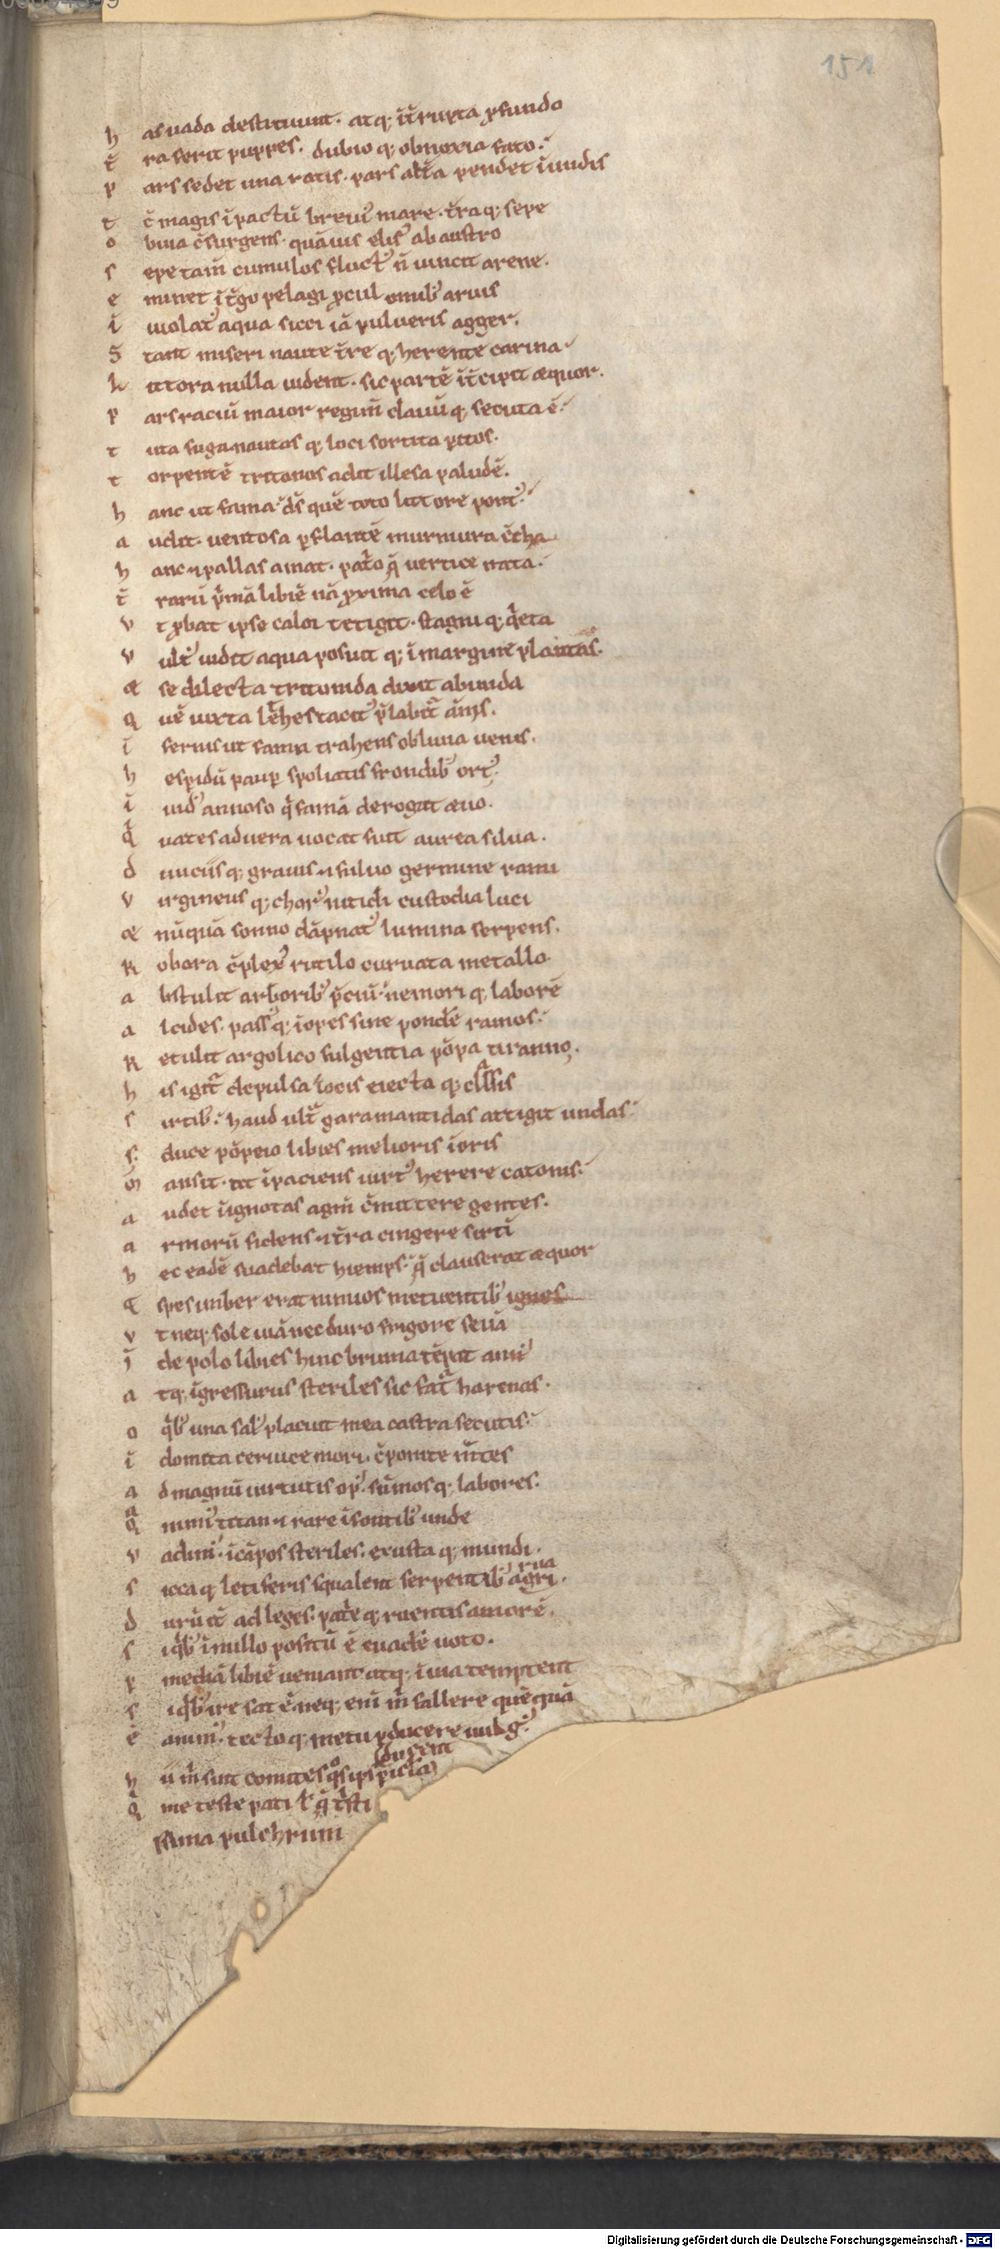 151
h as uada destituunt. atq; īt̄rupta ꝓfundo
t̄ ra ferit puppes. dubio q; obnoxia fato.
p ars sedet una ratis. pars alt̄a pendet ī undis
t c̄ magis īpactū breuib᾿ mare. t̄raq; sepe
o buia c̄surgens. quāuis elis᾿ ab austro
s epe tam̄ cumulos fluct᾿ n̄ uincit arene.
e minet ī t̄go pelagi ꝓcul omib᾿ aruis
ī uiolat᾿ aqua sicci iā pulueris agger.
S̄ tant miseri naute t̄re q; herente carina
L ittora nulla uident. sic partē īt̄cipit æquor.
p ars raciū maior regim̄ clauū q; secuta ē.
t uta fuga nautas q; loci sortita ꝑitos.
t orpentē tritonos adit illesa paludē.
h anc ut fama. d̄s quē toto littore pont᾿
a udit. uentosa ꝑflantē murmura c̄cha
h anc ⁊ pallas amat. pat̄o q̄ uertice nata.
t̄ rarū p̄mā libiē nā ꝓxima celo ē
v t ꝓbat ipse calor tetigit. stagni q; q̄eta
v ult᾿ uidit aqua posuit q; ī margine plantas.
æ se dilecta tritonida dixit ab unda
q uē iuxta lethes tacit᾿ p̄labit᾿ amīs.
ī fernis ut fama trahens obliuia uenis.
h espidū pauꝑ spoliatis frondib᾿ ort᾿.
ī uid᾿ annoso q̄ famā derogat æuo.
q̄ uates ad uera uocat fuit aurea silua.
d iuiciis q; grauis ⁊ fuluo germine rami
v irgineus q; chor᾿ nitidi custodia luci
æ nūquā somno dāpnat᾿ lumina serpens.
R obora c̄plex᾿ rutilo curuata metallo
a bstulit arborib᾿ p̄ciū. nemori q; laborē
a lcides. pass᾿q; iopes sine pondere ramos.
R etulit argolico fulgentia pōpa tiranno
h is igit᾿ depulsa locis eiecta q; classis
s irtib᾿. haud ult᾿ garamantidas attigit undas.
s. duce pōpeio libies melioris ī oris
m̄ ansit. at īpaciens uirt᾿ herere catonis.
a udet ī ignotas agm̄ c̄mittere gentes.
a rmorū fidens ⁊ t̄ra cingere sirtī
h ec eadē suadebat hiemps. q̄ clauserat æquor
& spes imber erat nimios metuentib᾿ ignes
v t neq; sole uiā nec duro frigore seuā
ī de polo libies hinc bruma tēp̄et anni
a tq; īgressurus steriles sic fat᾿ harenas.
o q̄b᾿ una sal᾿ placuit mea castra secutis.
ī domita ceruice mori. c̄ponite m̄tes
a d magnū uirtutis op᾿. sūmos q; labores.
q nimi᾿ titan ⁊ rare ī fontib᾿ unde
v adim᾿. ī cāpos steriles. exusta q; mundi.
s icca q; letiferis squalent serpentib᾿ agri. rua
d urū it᾿ ad leges. pat̄e q; ruentis amorē.
s iq̄b᾿ ī nullo positū ē euadere uoto.
p mediā libiē ueniant atq; ī uia temptent
s iq̄b᾿ ire sat ē. neq; enī m̄ fallere quēquā
ē anim᾿. tecto q; metu ꝑducere uulg᾿.
duxerit
h ii m̄ sint comites q̄s ipsa pericla
q̄ me teste pati ł q̄ t̄sti
ssima pulchrum
Digitalisierung gefördert durch die Deutsche Forschungsgemeinschaft - DFG